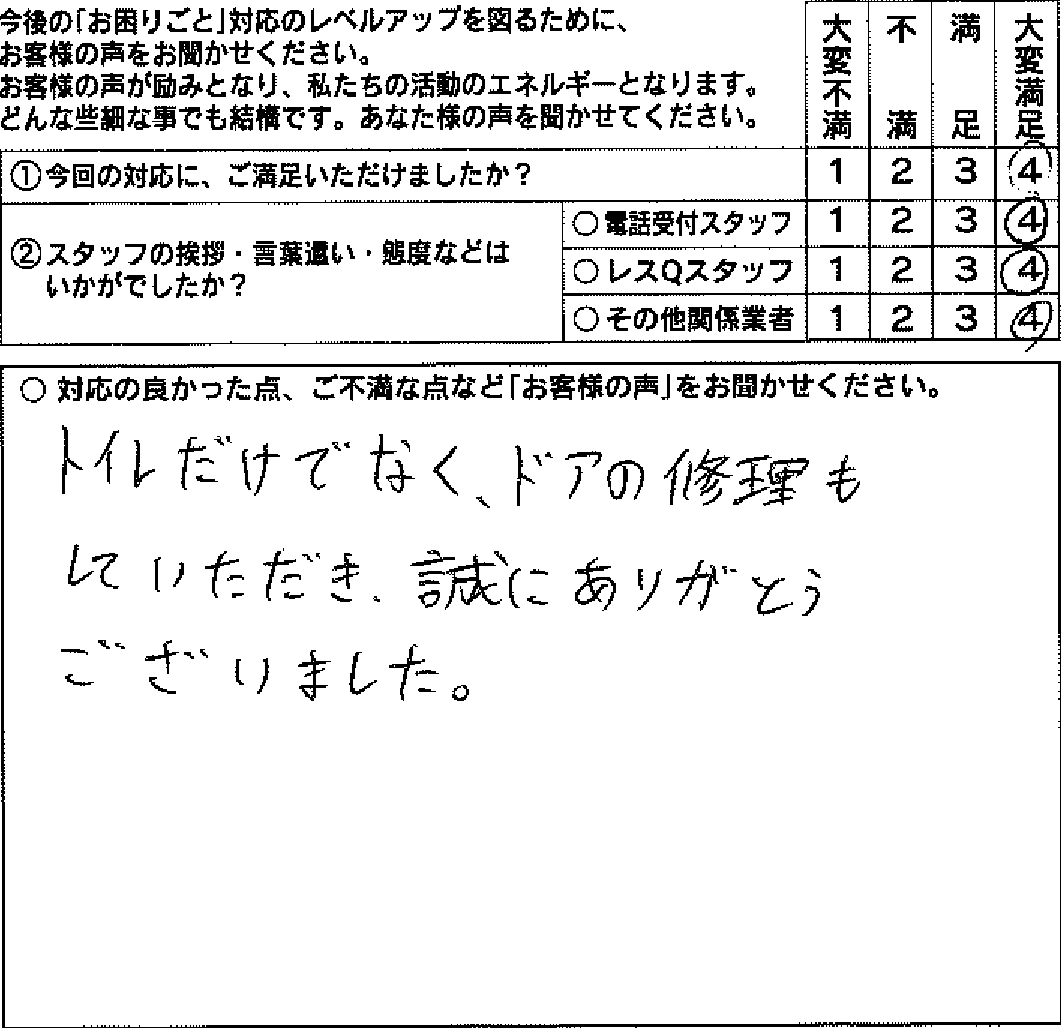 今後の「お困りごと」対応のレベルアップを図るために、
お客様の声をお聞かせください。
お客様の声が励みとなり、私たちの活動のエネルギーとなります。
どんな些細な事でも結構です。あなた様の声を聞かせてください。
大変不満 不満 満足 大変満足
①今回の対応に、ご満足いただけましたか？ 1 2 3 4
②スタッフの挨拶・言葉遣い・態度などは
いかがでしたか？
○電話受付スタッフ 1 2 3 4
○レスQスタッフ 1 2 3 4
○その他関係業者 1 2 3 4
○ 対応の良かった点、ご不満な点など「お客様の声」をお聞かせください。
トイレだけでなく、ドアの修理も
していただき、誠にありがとう
ございました。